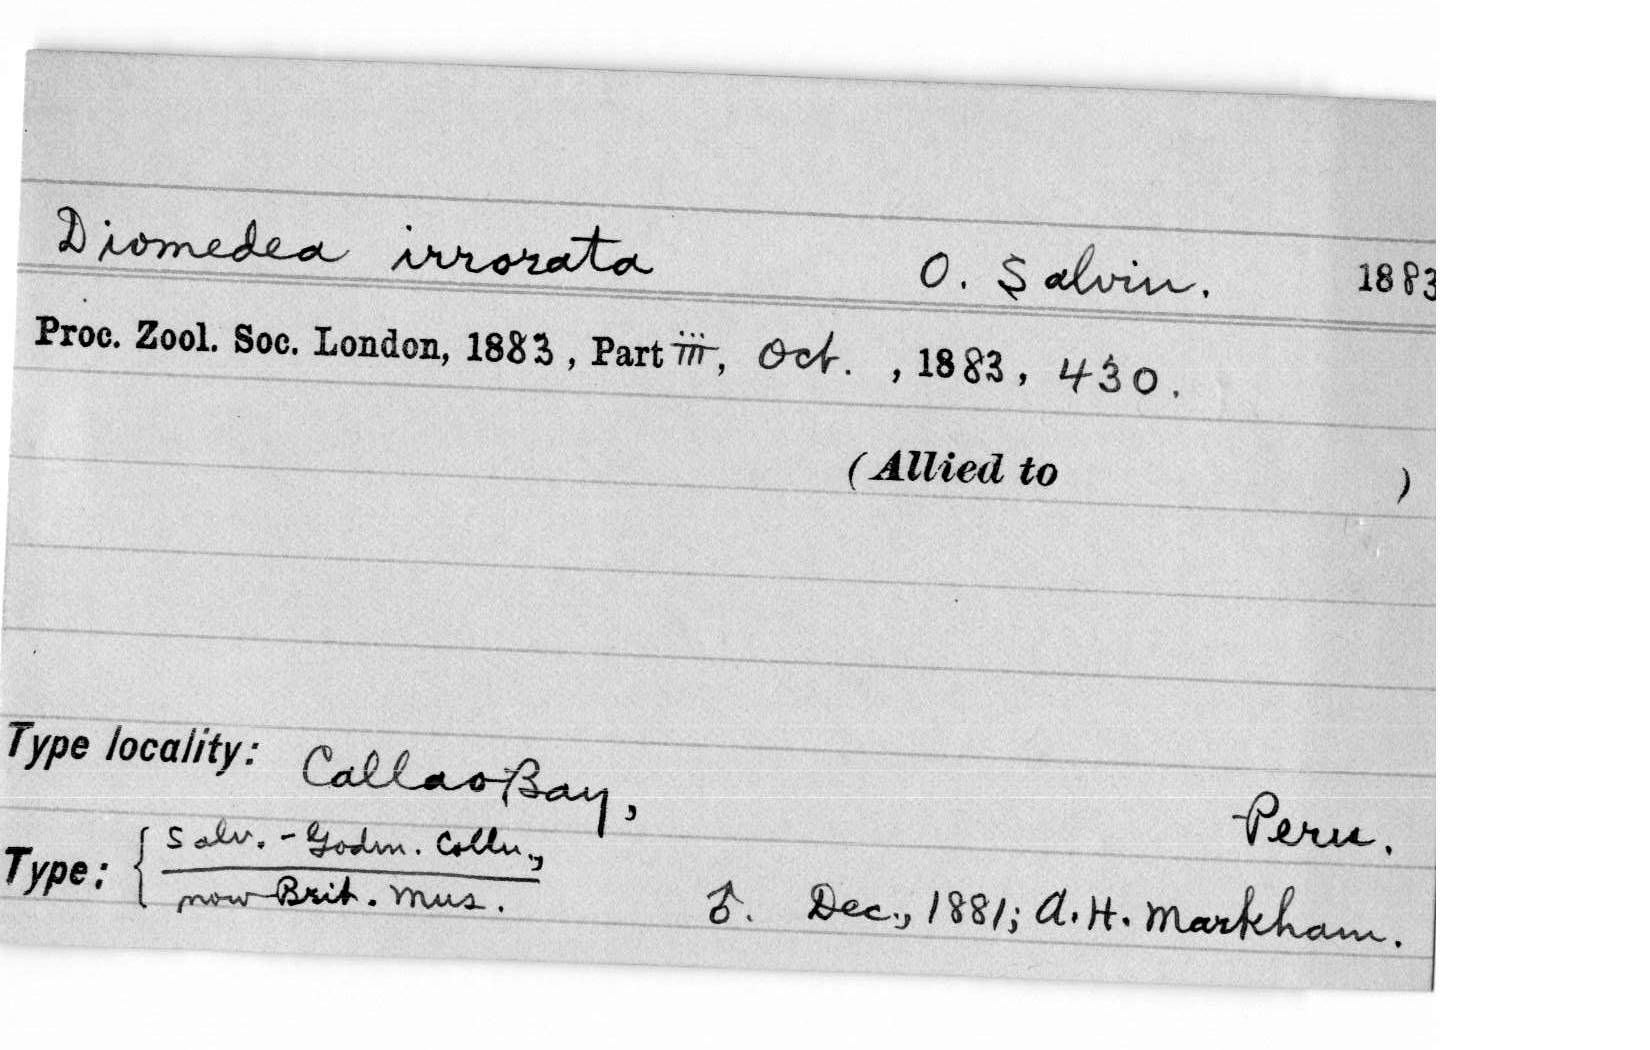 Diomedea irrorata O. Salvin. 1883
Proc. Zool. Soc. London, 1883, Part iii, Oct. , 1883, 430.
(Allied to )
Type locality: Callao Bay, Peru.
Type: { Salv.-Godm. Colln.,
now Brit. Mus. ♂. Dec., 1881; A. H. Markham.